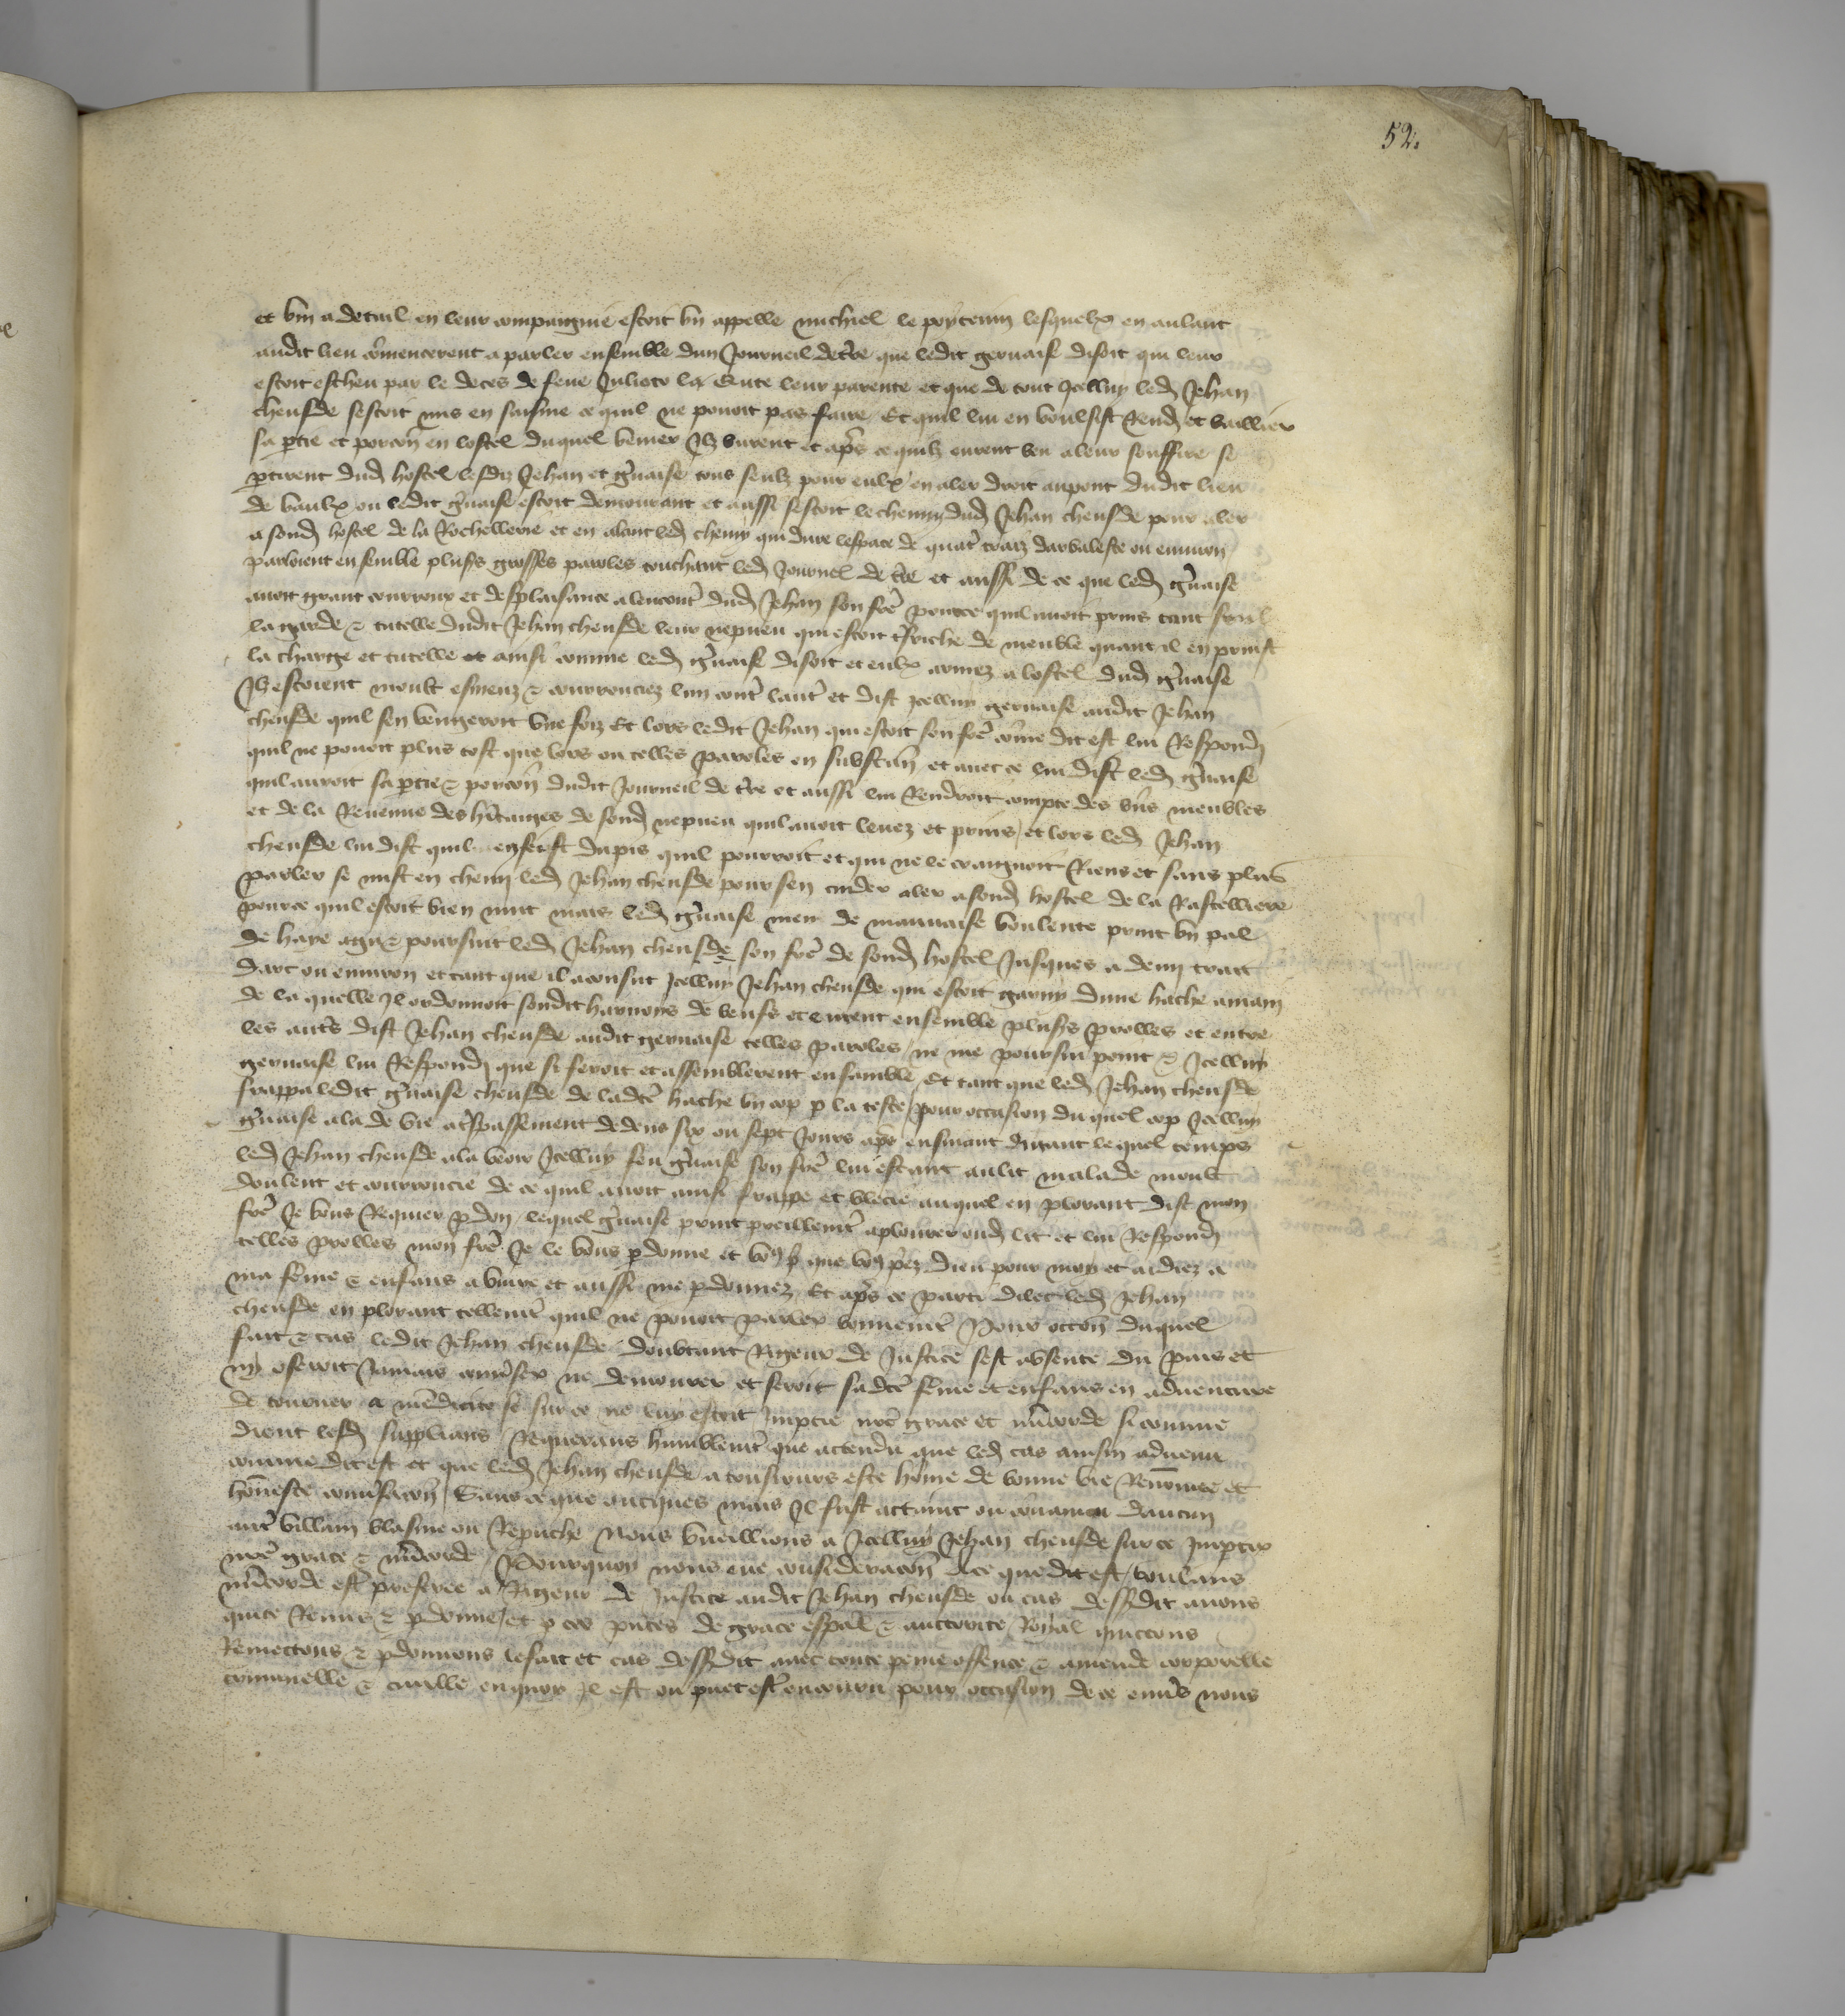 52.
et vin a detail en leur compaignie estoit un appelle michiel le poytevin lesquelx en aulant
audit lieu com̃encerent a parler ensemble dun Journeil de tr̃e que ledit gervaise disoit qui leur
estoit escheu par le deces de feue Juliote la leur parente et que de tout Icelluy led Jehan
cheusde sestoit mis en saisine ce quil ne povoit pas faire Et quil lui en voulsist Rend et baillier
sa ptie et porcon̄ en lostel duquel Ilz burent et aps ce quilz eurent beu a leur souffire se
ptirent dud hostel lesdiz Jehan et gvaise tous seulz pour eulx en aler droit au pont dudit lieu
de vaulx ou ledit gvaise estoit demourant et aussi sestoit le chemin dud Jehan cheusde pour aler
a sond hostel de la Rochelliere et en alant led chemin qui dure lespace de quatr̃ traiz darbaleste ou environ
parloient ensemble plusrs grosses paroles touchant led Journel de tr̃e et aussi de ce que led gvaise
avoit grant courroux et desplaisance a lencontr̃ dud Jehan son frẽ pource quil avoit prins tout seul
la garde & tutelle dudit Jehan cheusde leur nepveu qui estoit tr̃s riche de meuble quant il en prinst
la charge et tutelle et ainsi comme led gvaise disoit et eulx arrivez a lostel dud gvaise
Ilz estoient moult esmeuz & courrouciez lun contr̃ lautr̃ et dist Icelluy gervaise audit Jehan
cheusde quil sen vengeroit une foiz Et lors ledit Jehan qui estoit son frẽ com̃e dit est lui Respond
quil ne povoit plus tost que lors ou telles paroles en substan̄ et avec ce lui dist led gvaise
quil auroit sa ptie & porcon̄ dudit Journeil de tr̃e et aussi lui Rendroit compte des biẽs meubles
et de la Revenue des hitaiges de sond nepveu quil avoit levez et prins / et lors led Jehan
cheusde lui dist quil en feist du pis quil pourroit et qui ne le craignoit Riens et sans plus
parler se mist en chemin led Jehan cheusde pour sen cuider aler a sond hostel de la Rastelliere
pource quil estoit bien nuit mais led gvaise meu de mauvaise voulente print un pal
de haye agu & poursuit led Jehan cheusde son frẽ de sond hostel Jusques a demy trait
darc ou environ et tant que il aconsut Icelluy Jehan cheusde qui estoit garny dune hache a main
de la quelle Il ordonnoit sondit harnoys de beufs et eurent ensemble plusrs prolles et entre
les autrs dist Jehan cheusde audit gervaise telles paroles / ne me poursui point & Icelluy
gervaise lui Respond que si feroit et assemblerent ensamble Et tant que led Jehan cheusde
frappa ledit gvaise cheusde de ladcẽ hache un cop p la teste / pour occasion du quel cop Icelluy
gvaise ala de vie a trspassement dedens six ou sept Jours aps ensuivant durant lequel temps
led Jehan cheusde ala veoir Icelluy feu gvaise son frẽ lui estant au lit malade moult
doulent et courroucie de ce quil avoit ainsi frappe et blecie auquel en plorant dist mon
frẽ Je vous Requier pdon / lequel gvaise print preillemt̃ a plourer oud lit et lui Respond
telles prolles mon frẽ Je le vous pdonne et vo9 p que vo9 pez dieu pour moy et aidiez a
ma fem̃e & enfans a vivre et aussi me pdonnez Et aps ce parti dilec led Jehan
cheusde en plorant tellemt̃ quil ne povoit parler bonnemt̃ Pour occon̄ duquel
fait & cas ledit Jehan cheusde doubtant Rigeur de Justice sest absente du pais et
ny oseroit Jamais convser ne demourer et seroit sadcẽ fem̃e et enfans en adventure
de tourner a mẽdicite se sur ce ne luy estoit Impartie nrẽ grace et mĩcorde si comme
dient lesd supplians Requerans humblemt̃ que actendu que led cas ainsin advenu
comme dit est et que led Jehan cheusde a tousiours este hom̃e de bonne vie Renom̃ee et
hon̄este convsacon̄ Sans ce que oncques mais Il fust actaint ou convaincu daucun
autr̃ villain blasme ou Repuche Nous vueillions a Icelluy Jehan cheusde sur ce Imptir
nrẽ grace & mĩcorde / Pourquoy nous eue consideracon̄ a ce que dit est / voulans
mĩcorde estr̃ preferee a Rigeur de Justice audit Jehan cheusde ou cas dessusdit avons
quicte Remis & pdonne / et p ces pñtes de grace espal & auctorite Royal quictons
Remectons & pdonnons le fait et cas dessusdit avec toute peine offence & amende corporelle
criminelle & civille en quoy Il est ou puet estr̃ encouru pour occasion de ce envs nous